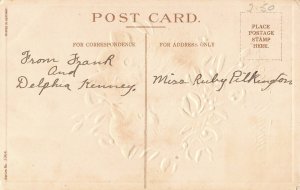 POST CARD.
2.50
PLACE
POSTAGE
STAMP
HERE.
FOR CORRESPONDENCE.
FOR ADDRESS ONLY
From Frank
And
Delphia Kenney.
Miss Ruby Pilkington